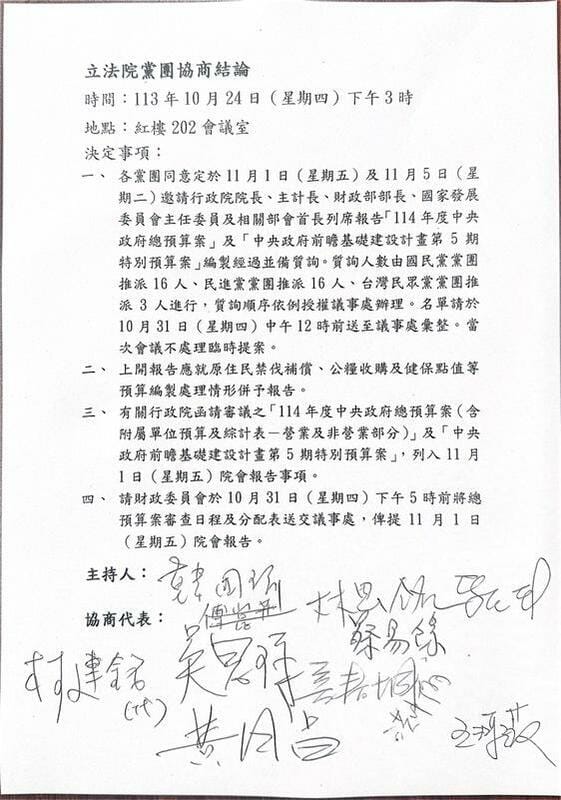 立法院黨團協商結論
時間：113年10月24日（星期四）下午3時
地點：紅樓202會議室
決定事項：
一、 各黨團同意定於11月1日（星期五）及11月5日（星
期二）邀請行政院院長、主計長、財政部部長、國家發展
委員會主任委員及相關部會首長列席報告「114年度中央
政府總預算案」及「中央政府前瞻基礎建設計畫第5期
特別預算案」編製經過並備質詢。質詢人數由國民黨黨團
推派16人、民進黨黨團推派16人、台灣民眾黨黨團推
派3人進行，質詢順序依例授權議事處辦理。名單請於
10月31日（星期四）中午12時前送至議事處彙整。當
次會議不處理臨時提案。
二、 上開報告應就原住民禁伐補償、公糧收購及健保點值等
預算編製處理情形併予報告。
三、 有關行政院函請審議之「114年度中央政府總預算案（含
附屬單位預算及綜計表－營業及非營業部分）」及「中央
政府前瞻基礎建設計畫第5期特別預算案」，列入11月
1日（星期五）院會報告事項。
四、 請財政委員會於10月31日（星期四）下午5時前將總
預算案審查日程及分配表送交議事處，俾提11月1日
（星期五）院會報告。
主持人：韓國瑜
協商代表：傅崐萁 林思銘
吳思瑤
黃國昌